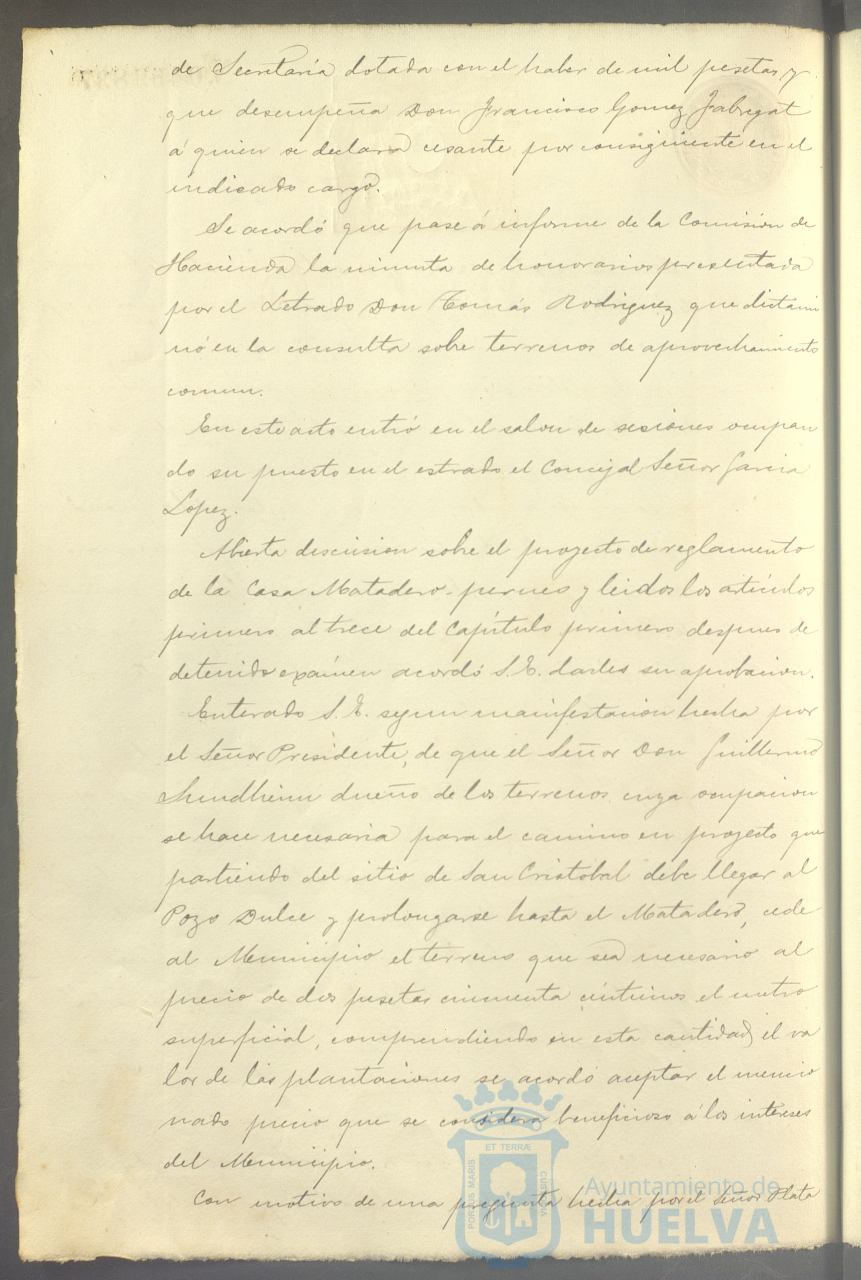 de Secretaría dotada con el haber de mil pesetas y
que desempeña Don Francisco Gomez Fabregat
á quien se declara cesante por consiguiente en el
indicado cargo.
Se acordó que pase á informe de la Comisión de
Hacienda la minuta de honorarios presentada
por el Letrado Don Tomás Rodriguez que dictami
nó en la consulta sobre terrenos de aprovechamiento
comun.
En este acto entró en el salon de sesiones ocupan
do su puesto en el estrado el Concejal Señor Garcia
Lopez.
Abierta discusion sobre el proyecto de reglamento
de la Casa Matadero y leidos los artículos
primero al trece del Capítulo primero despues de
detenido exámen acordó S.E. darles su aprobacion.
Enterado S.E. segun manifestacion hecha por
el Señor Presidente, de que el Señor Don Guillermo
Sundheim dueño de los terrenos cuya ocupacion
se hace necesaria para el camino en proyecto que
partiendo del sitio de San Cristobal debe llegar al
Pozo Dulce y prolongarse hasta el Matadero, cede
al Municipio el terreno que sea necesario al
precio de dos pesetas cincuenta céntimos el metro
superficial, comprendiendo en esta cantidad el va
lor de las plantaciones se acordó aceptar el mencio
nado precio que se considera beneficioso á los intereses
del Municipio.
Con motivo de una pregunta hecha por el Señor Plata
ET TERRÆ
PORTUS MARIS
CUSTODIA
Ayuntamiento de
HUELVA